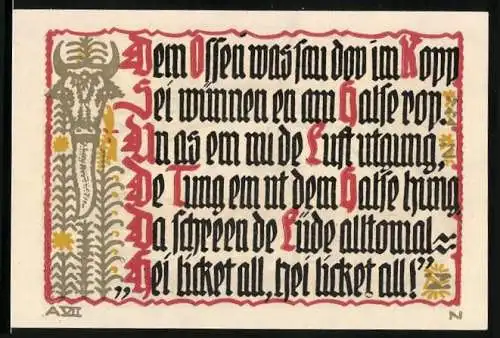 Dem Ossen was sau dov im Kopp
Sei wünnen en am Halse rop.
Un as em nu de Luft utgung,
De Tung em ut dem Halse hung,
Da schreen de Lüde alltomal~
„Hei licket all, hei licket all!“
A VII
N